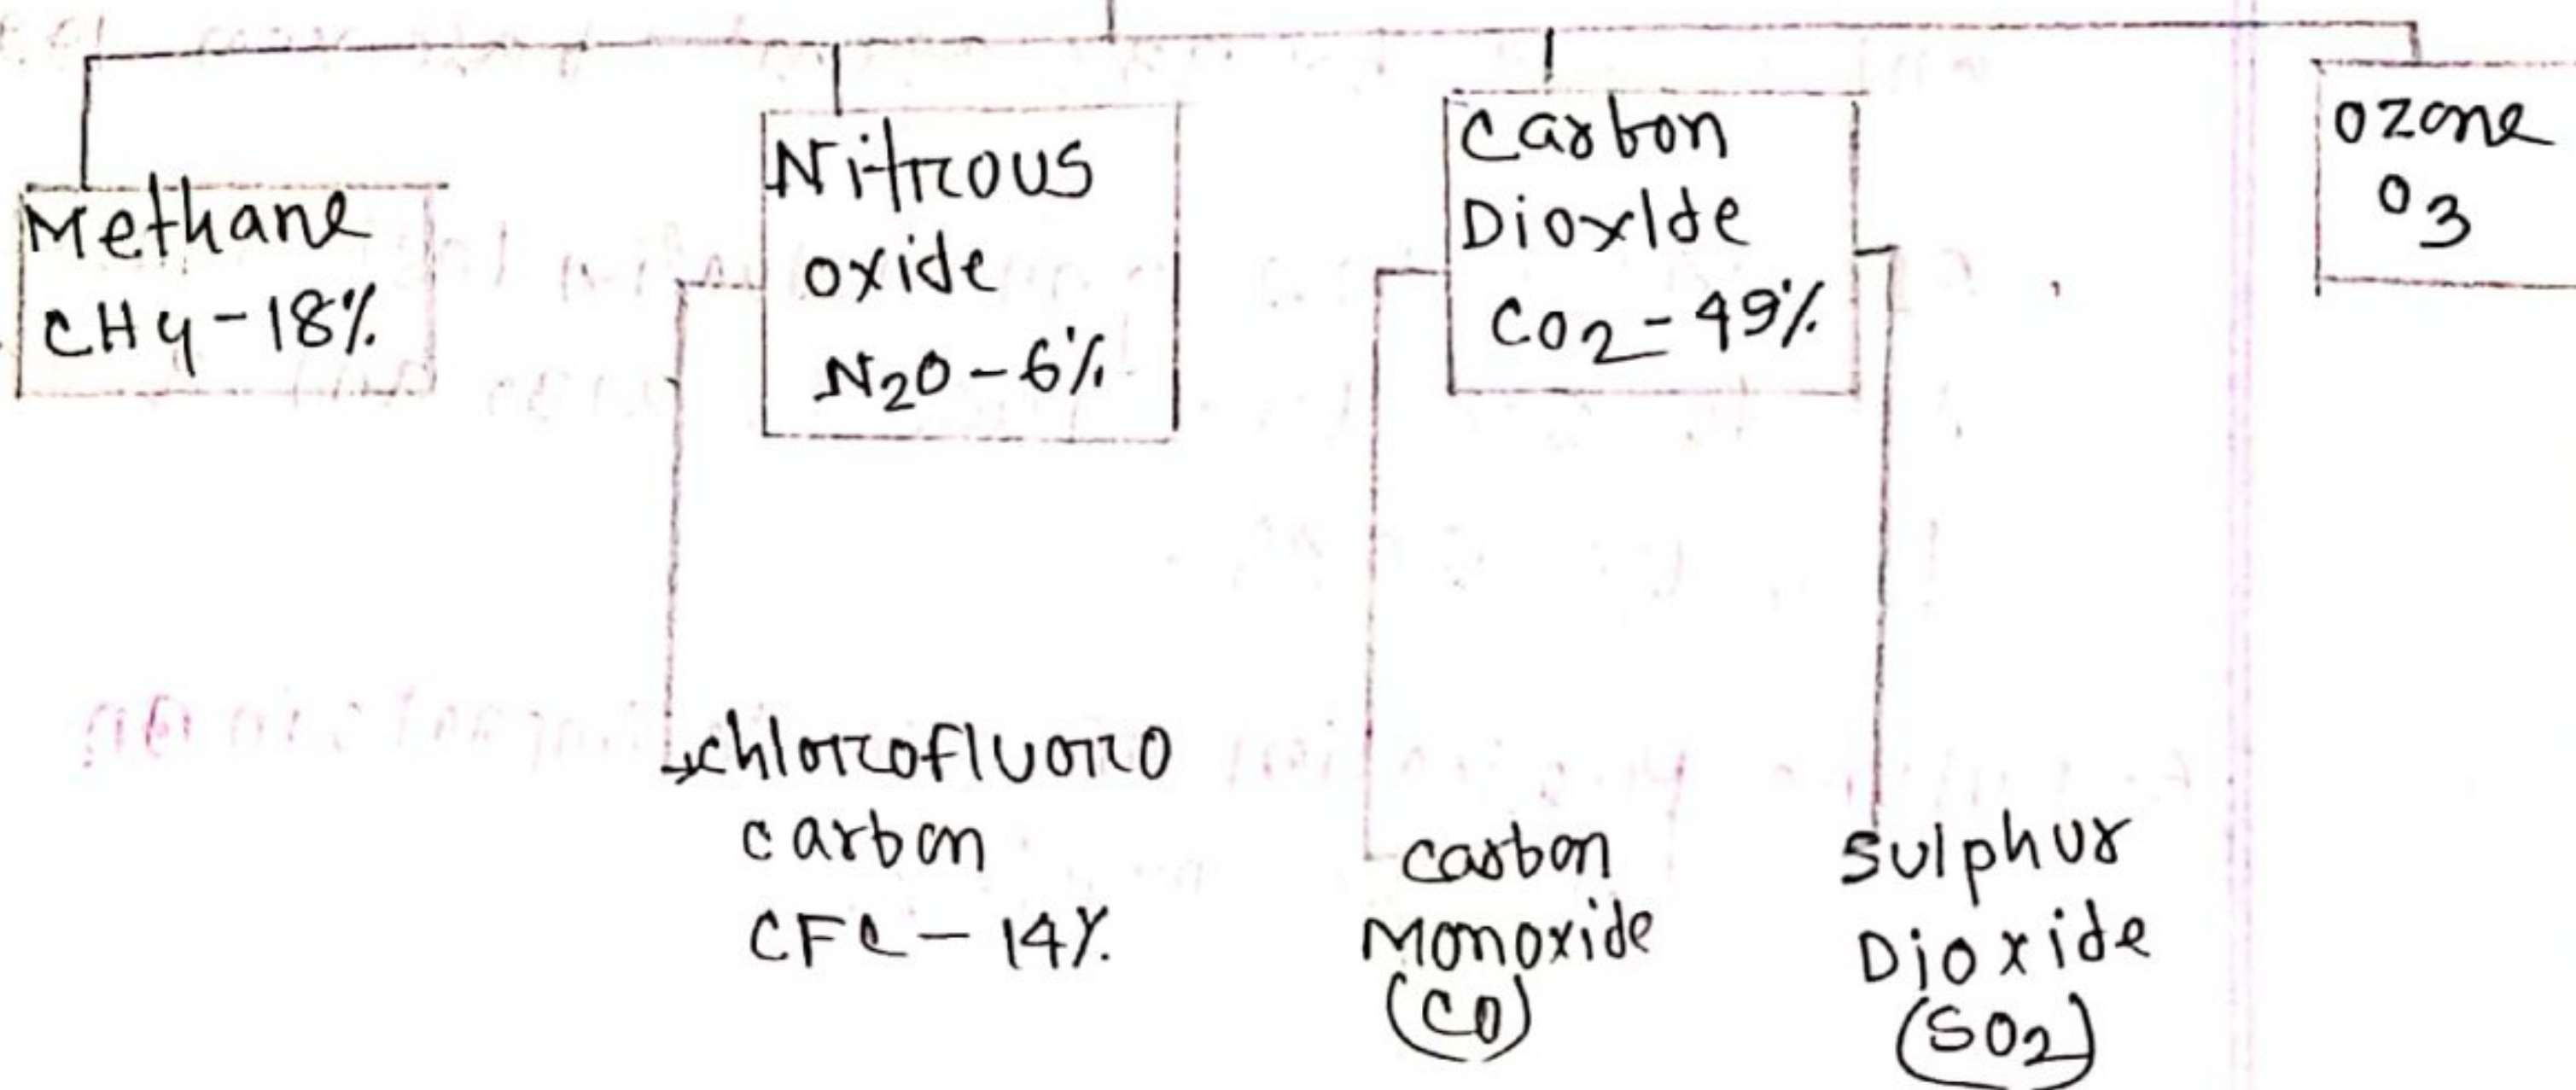 Methane
CH4-18%
Nitrous
oxide
N2O-6%
Carbon
DioxIde
CO2-49%
Ozone
O3
chlorofluoro
carbon
CFC-14%
carbon
Monoxide
(CO)
Sulphur
Dioxide
(SO2)